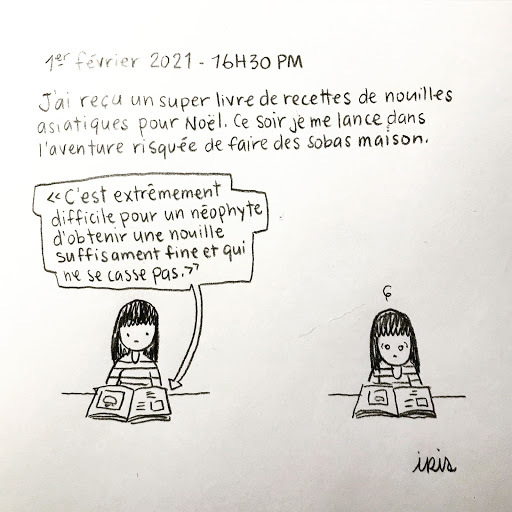 1er février 2021 - 16H30 PM
J'ai reçu un super livre de recettes de nouilles
asiatiques pour Noël. Ce soir je me lance dans
l'aventure risquée de faire des sobas maison.
<<C'est extrêmement
difficile pour un néophyte
d'obtenir une nouille
suffisament fine et qui
ne se casse pas.>>
iris